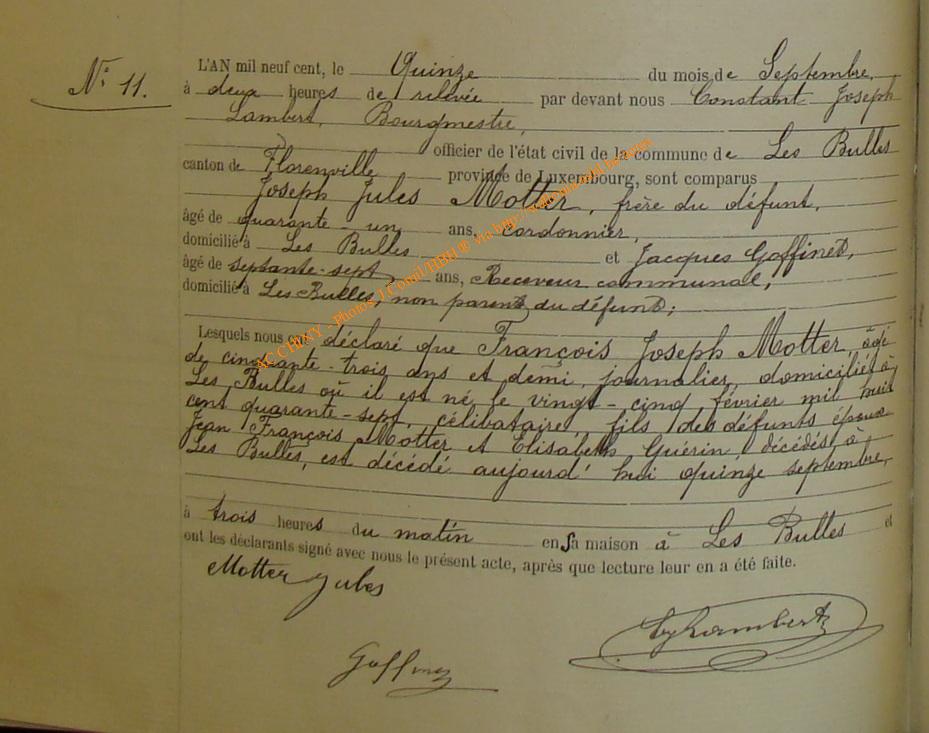 N° 11.
L'AN mil neuf cent, le Quinze du mois de Septembre,
à deux heures de relevée par devant nous Constant Joseph
Lambert, Bourgmestre,
officier de l'état civil de la commune de Les Bulles
canton de Florenville province de Luxembourg, sont comparus
Joseph Jules Motter, frère du défunt,
âgé de quarante-un ans, cordonnier,
domicilié à Les Bulles et Jacques Goffinet,
âgé de septante-sept ans, Receveur communal,
domicilié à Les Bulles, non parent du défunt;
Lesquels nous ont déclaré que François Joseph Motter, âgé
de cinquante-trois ans et demi, journalier, domicilié à
Les Bulles où il est né le vingt-cinq février mil huit
cent quarante-sept, célibataire, fils des défunts époux
Jean François Motter et Elisabeth Guérin, décédés à
Les Bulles, est décédé aujourd'hui quinze septembre,
à trois heures du matin en sa maison à Les Bulles et
ont les déclarants signé avec nous le présent acte, après que lecture leur en a été faite.
Motter Jules
Goffinet
CJLambert
CHINY - Photos J.Comil/HBH® via http://